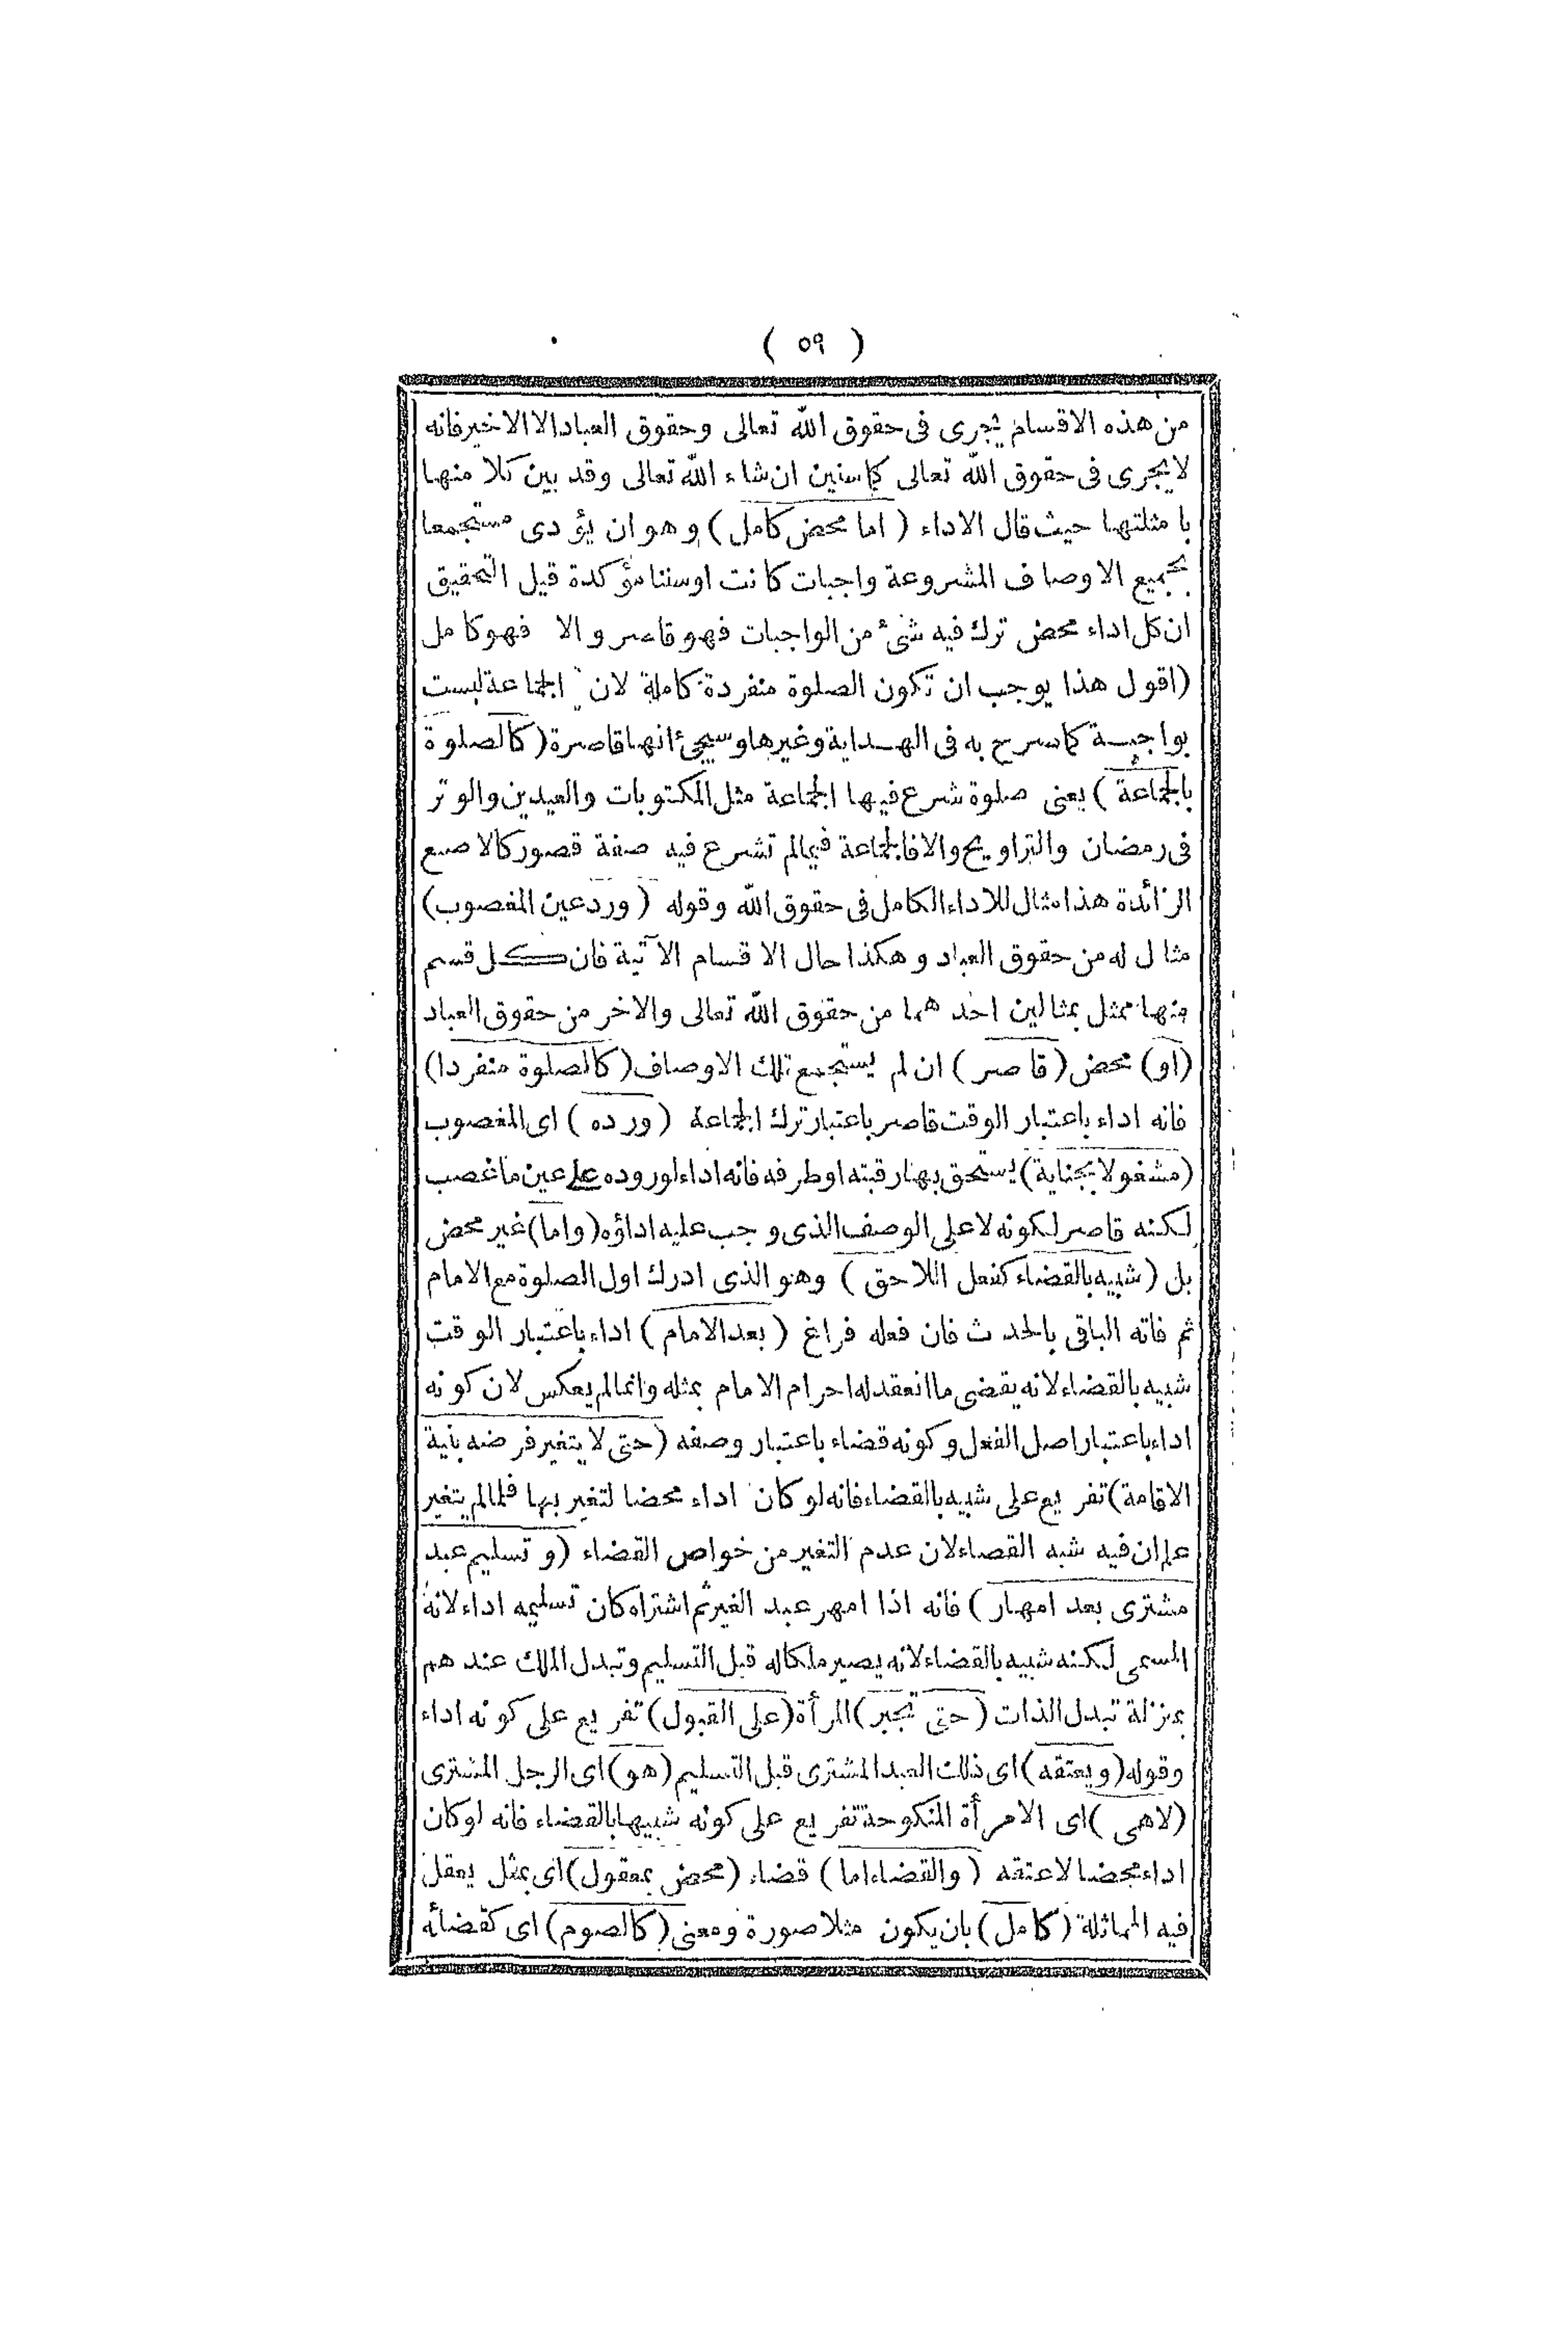 ( ٥٩ )
من هذه الاقسام يجرى فى حقوق الله تعالى وحقوق العباد الا الاخير فانه
لا يجرى فى حقوق الله تعالى كما سنبين ان شاء الله تعالى وقد بين كلا منها
بامثلتها حيث قال الاداء ( اما محض كامل ) وهو ان يؤدى مستجمعا
بجميع الاوصاف المشروعة واجبات كانت او سننا مؤكدة قيل التحقيق
ان كل اداء محض ترك فيه شئ من الواجبات فهو قاصر والا فهو كامل
(اقول هذا يوجب ان تكون الصلوة منفردة كاملة لان الجماعة ليست
بواجبة كما صرح به فى الهداية وغيرها وسيجئ انها قاصرة (كالصلوة
بالجماعة ) يعنى صلوة شرع فيها الجماعة مثل المكتوبات والعيدين والوتر
فى رمضان والتراويح والا فالجماعة فيما لم تشرع فيه صفة قصور كالاصبع
الزائدة هذا مثال للاداء الكامل فى حقوق الله وقوله ( ورد عين المغصوب)
مثال له من حقوق العباد وهكذا حال الاقسام الآتية فان كل قسم
منها ممثل بمثالين احدهما من حقوق الله تعالى والاخر من حقوق العباد
(او) محض (قاصر ) ان لم يستجمع تلك الاوصاف (كالصلوة منفردا)
فانه اداء باعتبار الوقت قاصر باعتبار ترك الجماعة ( ورده ) اى المغصوب
(مشغولا بجناية) يستحق بها رقبته او طرفه فانه اداء لوروده على عين ما غصب
لكنه قاصر لكونه لا على الوصف الذى وجب عليه اداؤه (واما) غير محض
بل (شبيه بالقضاء كفعل اللاحق ) وهو الذى ادرك اول الصلوة مع الامام
ثم فاته الباقى بالحدث فان فعله فراغ ( بعد الامام ) اداء باعتبار الوقت
شبيه بالقضاء لانه يقضى ما انعقد له احرام الامام بمثله وانما لم يعكس لان كونه
اداء باعتبار اصل الفعل وكونه قضاء باعتبار وصفه (حتى لا يتغير فرضه بنية
الاقامة) تفريع على شبيه بالقضاء فانه لو كان اداء محضا لتغير بها فلما لم يتغير
علم ان فيه شبه القضاء لان عدم التغير من خواص القضاء (و تسليم عبد
مشترى بعد امهار ) فانه اذا امهر عبد الغير ثم اشتراه كان تسليمه اداء لانه
المسمى لكنه شبيه بالقضاء لانه يصير ملكا له قبل التسليم وتبدل الملك عندهم
بمنزلة تبدل الذات (حتى تجبر) المرأة (على القبول) تفريع على كونه اداء
وقوله (ويعتقه) اى ذلك العبد المشترى قبل التسليم (هو) اى الرجل المشترى
(لاهى ) اى الامرأة المنكوحة تفريع على كونه شبيها بالقضاء فانه لو كان
اداء محضا لاعتقه ( والقضاء اما ) قضاء (محض بمعقول) اى بمثل يعقل
فيه المماثلة (كامل) بان يكون مثلا صورة ومعنى (كالصوم) اى كقضائه